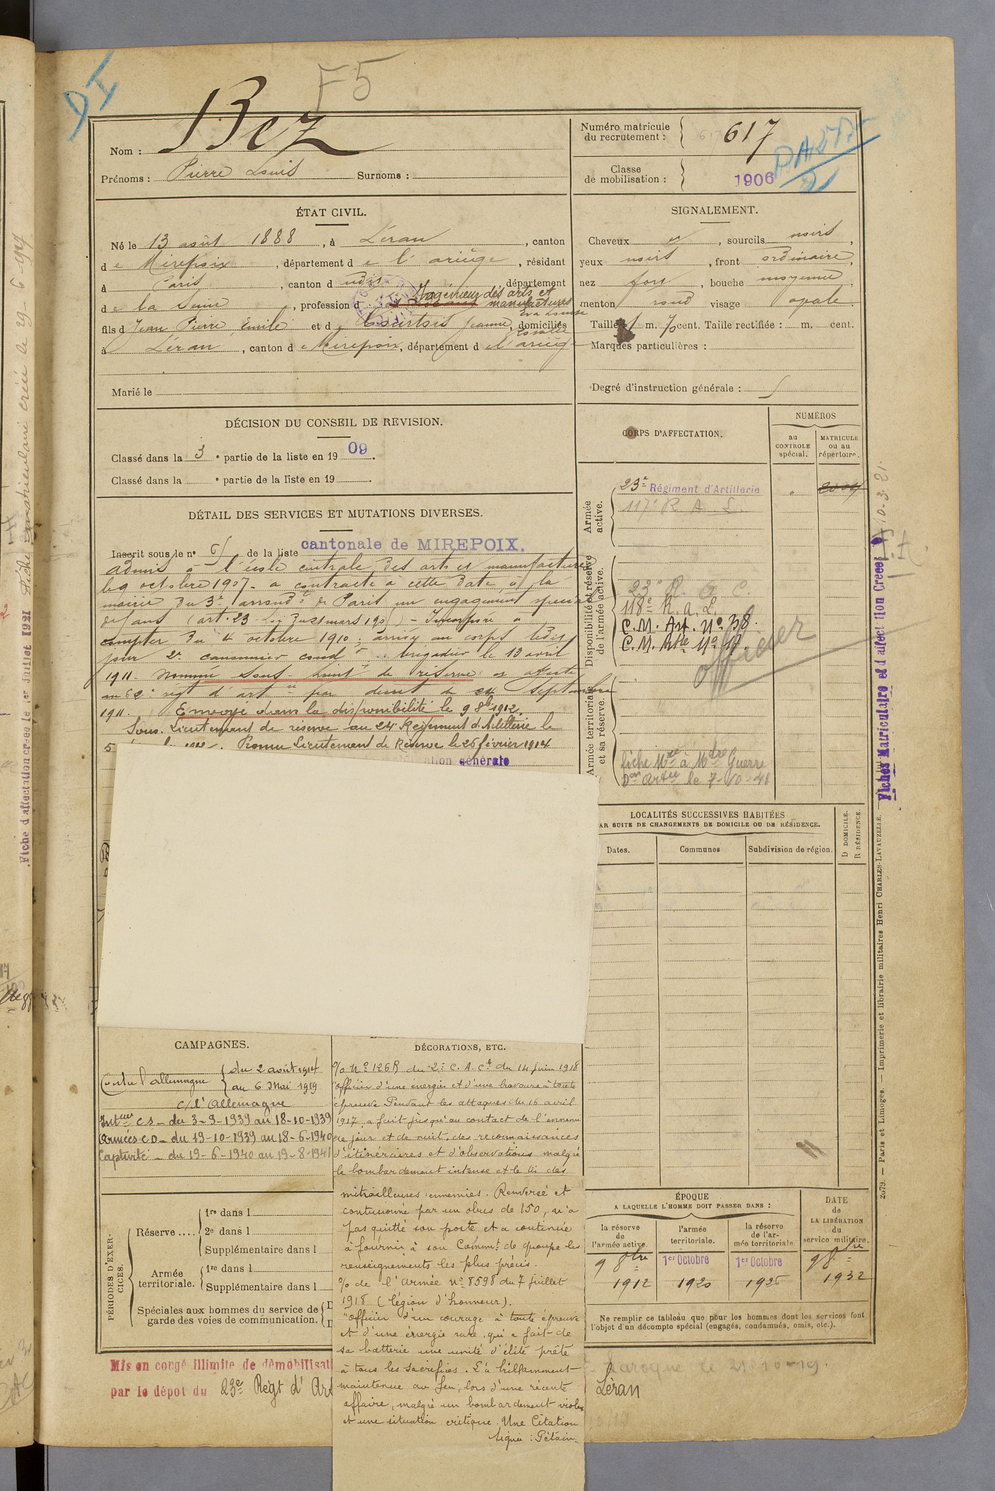 DI
F5
Nom : Bez
Prénoms : Pierre Louis Surnoms :
Numéro matricule du recrutement : 617
Classe de mobilisation : 1906
ÉTAT CIVIL.
Né le 13 août 1888, à Léran, canton
de Mirepoix, département de l'ariège, résidant
à Paris, canton d udit, département
de la Seine, profession d Ingénieur des arts et manufactures
fils de Jean Pierre Emile et de Jeanne, domiciliés
à Léran, canton de Mirepoix, département de l'ariège
Marié le
SIGNALEMENT.
Cheveux noirs, sourcils noirs,
yeux noirs, front ordinaire,
nez fort, bouche moyenne,
menton rond visage ovale.
Taille 1 m. 70 cent. Taille rectifiée : m. cent.
Marques particulières :
Degré d'instruction générale : 5
DÉCISION DU CONSEIL DE REVISION.
Classé dans la 3e partie de la liste en 1909.
Classé dans la e partie de la liste en 19 .
DÉTAIL DES SERVICES ET MUTATIONS DIVERSES.
Inscrit sous le n° 61 de la liste cantonale de MIREPOIX.
admis à l'école centrale des arts et manufactures
le 9 octobre 1907 - a contracté à cette date à la
mairie du 3e arrondt de Paris un engagement spécial
de 4 ans (art. 23 loi du 21 mars 1905) - Incorporé à
compter du 4 octobre 1910 ; arrivé au corps ledit
jour 2e canonnier condr .. brigadier le 10 avril
1911. Nommé sous-lieutt de réserve et affecté
au régt d'artie par décret du 24 Septembre
1911. Envoyé dans la disponibilité le 9 8bre 1912.
Sous-Lieutenant de réserve au 24 Régiment d'Artillerie le
Promu Lieutenant de Réserve le 25 février 1914
générale
CORPS D'AFFECTATION.
NUMÉROS
au CONTROLE spécial.
MATRICULE ou au répertoire.
Armée active.
23e Régiment d'Artillerie
117e R A L.
Disponibilité et réserve de l'armée active.
23e R. A. C.
118e R. a. L.
C.M. Art. N° 38.
C.M. Artie N° 17.
officier
Armée territoriale et sa réserve.
fiche Mle à Mtre Guerre
Don Artie le 7-10-41
LOCALITÉS SUCCESSIVES HABITÉES
PAR SUITE DE CHANGEMENTS DE DOMICILE OU DE RÉSIDENCE.
Dates.
Communes
Subdivision de région.
D DOMICILE.
R RÉSIDENCE.
CAMPAGNES.
Contre l'allemagne { du 2 août 1914
au 6 Mai 1919
C/ l'Allemagne
Inteur C S - du 3-9-1939 au 18-10-1939
Armées C D - du 19-10-1939 au 18-6-1940
Captivité - du 19-6-1940 au 19-8-1941
DÉCORATIONS, ETC.
% N° 126 R du 2e C. A. Cal du 14 juin 1918
"officier d'une énergie et d'une bravoure à toute
épreuve. Pendant les attaques du 16 avril
1917, a fait jusqu'au contact de l'ennemi
de jour et de nuit, des reconnaissances
d'itinéraires et d'observatoires malgré
le bombardement intense et le tir des
mitrailleuses ennemies. Renversé et
contusionné par un obus de 150, n'a
pas quitté son poste et a continué
à fournir à son Commt de groupe les
renseignements les plus précis.
% de l'armée n° 8598 du 7 juillet
1918 (Légion d'honneur).
"officier d'un courage à toute épreuve
et d'une énergie rare qui a fait de
sa batterie une unité d'élite prête
à tous les sacrifices. L'a brillamment
maintenue au feu, lors d'une récente
affaire, malgré un bombardement violent
et une situation critique. Une Citation
signé : Pétain.
PÉRIODES D'EXERCICES.
Réserve ....
1re dans l
2e dans l
Supplémentaire dans l
Armée territoriale.
1re dans l
Supplémentaire dans l
Spéciales aux hommes du service de garde des voies de communication.
ÉPOQUE
A LAQUELLE L'HOMME DOIT PASSER DANS :
la réserve de l'armée active.
l'armée territoriale.
la réserve de l'armée territoriale.
DATE DE LA LIBÉRATION du service militaire.
9 8bre 1912
1er Octobre 1920
1er Octobre 1926
9 8bre 1932
Ne remplir ce tableau que pour les hommes dont les services font
l'objet d'un décompte spécial (engagés, condamnés, omis, etc.).
Mis en congé illimité de démobilisat
par le dépôt du 23e Régt d'Art
Laroque le 21-10-19.
Léran
Fiches Matriculaire et d'affectation Créées
2079. — Paris et Limoges. — Imprimerie et librairie militaires Henri CHARLES-LAVAUZELLE.
Fiche d'affectation créée le 1er Juillet 1921